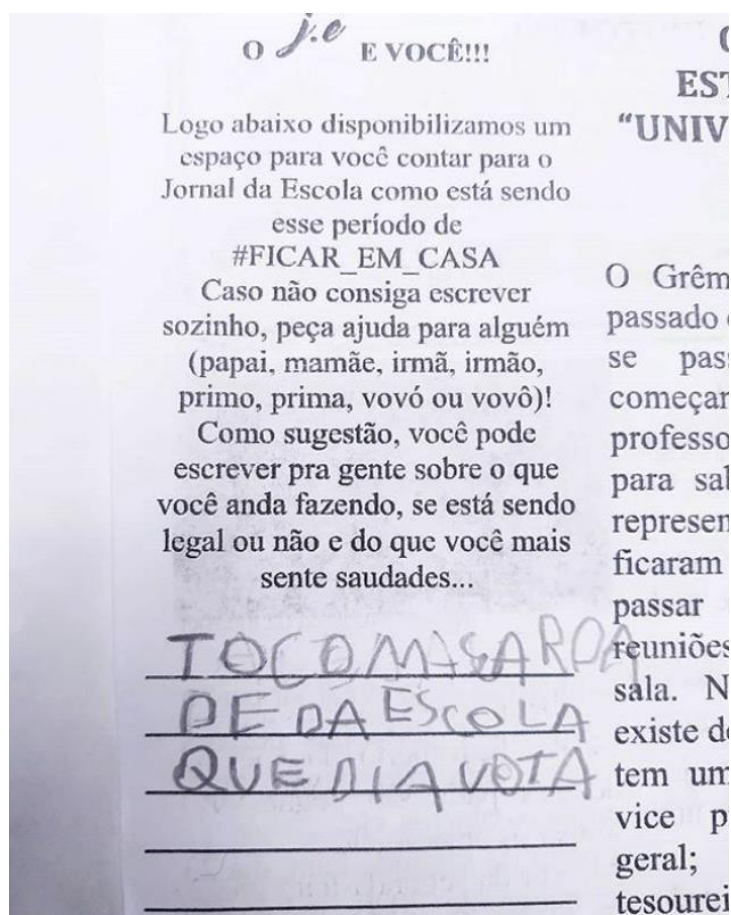 O j.e E VOCÊ!!!
Logo abaixo disponibilizamos um
espaço para você contar para o
Jornal da Escola como está sendo
esse período de
#FICAR_EM_CASA
Caso não consiga escrever
sozinho, peça ajuda para alguém
(papai, mamãe, irmã, irmão,
primo, prima, vovó ou vovô)!
Como sugestão, você pode
escrever pra gente sobre o que
você anda fazendo, se está sendo
legal ou não e do que você mais
sente saudades...
TO COM SARDA
DE DA ESCOLA
QUE DIA VOTA
EST
"UNIV
O Grêm
passado
se pas
começar
professo
para sal
represen
ficaram
passar
reuniões
sala. N
existe de
tem um
vice p
geral;
tesourei